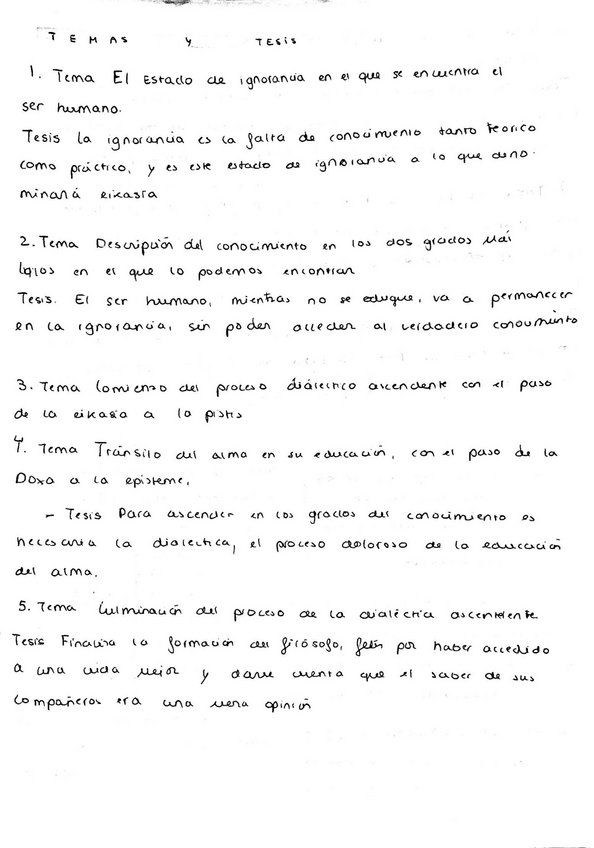 TEMAS Y TESIS
1. Tema El Estado de ignorancia en el que se encuentra el
ser humano.
Tesis la ignorancia es la falta de conocimiento tanto teorico
como práctico, y es este estado de ignorancia a lo que deno-
minará eikasia
2. Tema Descripción del conocimiento en los dos grados más
bajos en el que lo podemos encontrar
Tesis. El ser humano, mientras no se eduque, va a permanecer
en la ignorancia, sin poder acceder al verdadero conocimiento
3. Tema Comienzo del proceso diálectico ascendente con el paso
de la eikasia a la pistis
4. Tema Tránsito del alma en su educación, con el paso de la
Doxa a la episteme.
- Tesis Para ascender en los grados del conocimiento es
necesaria la dialectica, el proceso doloroso de la educación
del alma.
5. Tema Culminación del proceso de la dialéctica ascendente
Tesis Finaliza la formación del filósofo, feliz por haber accedido
a una vida mejor y darse cuenta que el saber de sus
compañeros era una mera opinión